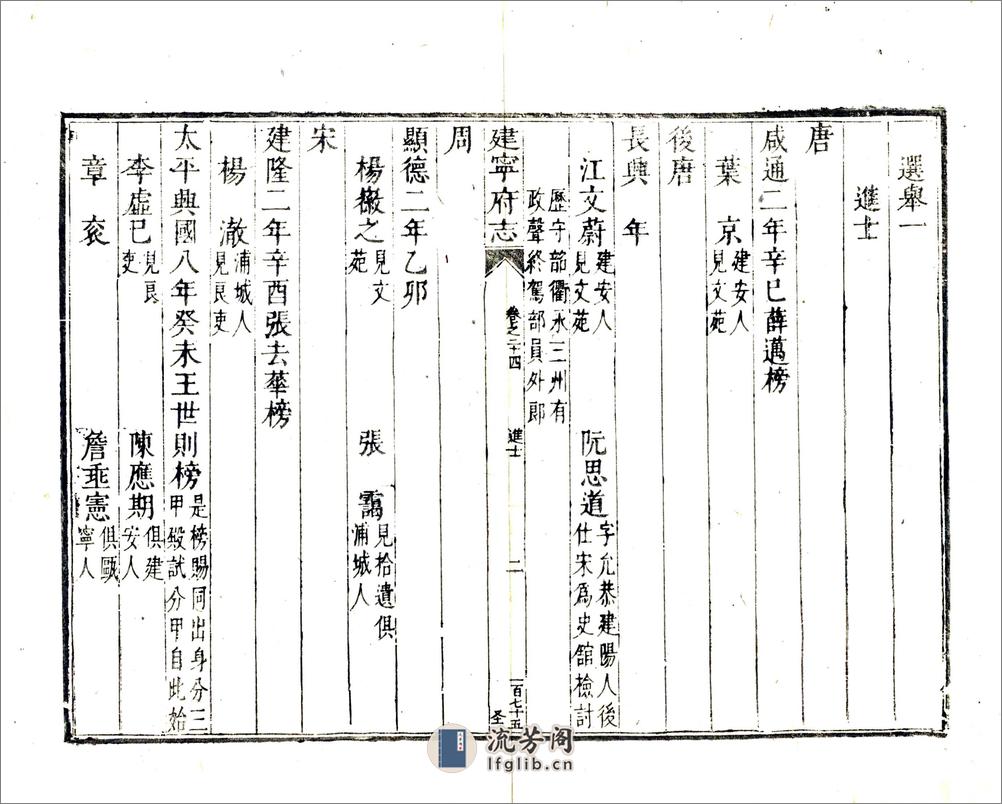 選舉一
進士
唐
咸通二年辛巳薛邁榜
葉京 建安人見文苑
後唐
長興 年
江文蔚 建安人見文苑 阮思道 字允恭建陽人後仕宋爲史舘檢計
歷守韶衢永三州有政聲終駕部員外郎
建寧府志 卷之三十四 進士 二 一百七十五
周
顯德二年乙卯
楊徽之 見文苑 張靄 見拾遺俱浦城人
宋
建隆二年辛酉張去華榜
楊澈 浦城人見良吏
太平興國八年癸未王世則榜 是榜賜同出身分三甲殿試分甲自此始
李虛己 見良吏 陳應期 俱建安人
章衮 詹亜憲 俱甌寧人
流芳阁
lfglib.cn